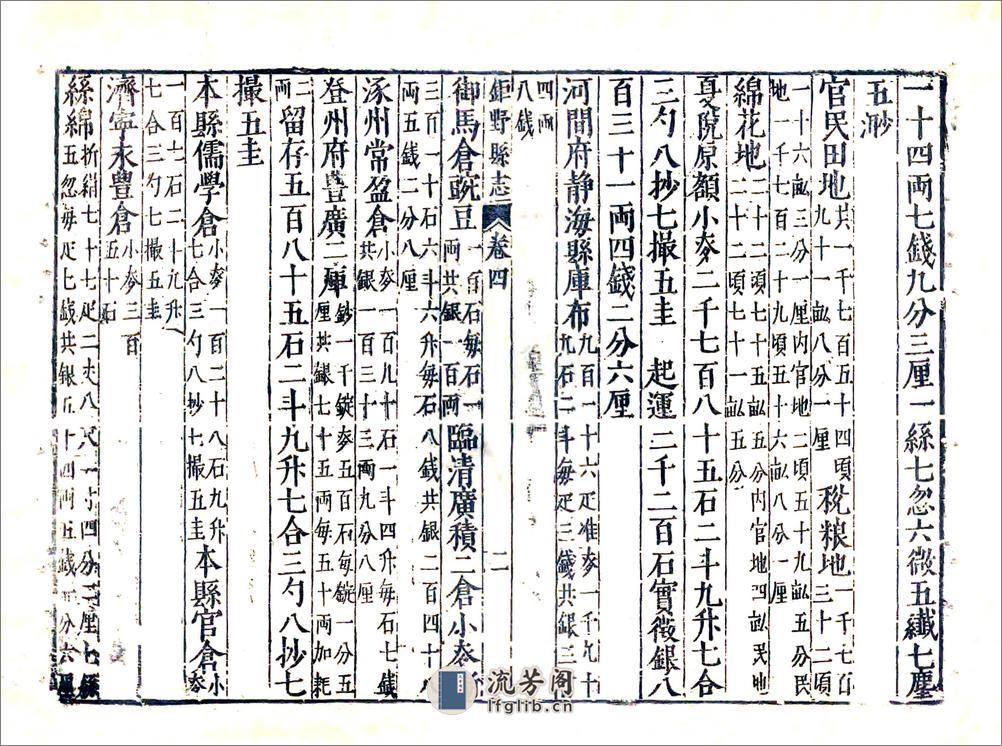 一十四両七錢九分三厘一絲七忽六微五纖七塵
五渺
官民田地共一千七百五十四頃九十一畝八分一厘 稅粮地一千七百三十二頃
一十六畝三分一厘内官地二頃五十九畝五分民地一千七百二十九頃五十六畝八分一厘
綿花地二十二頃七十五畝五分内官地四畝民地二十二頃七十一畝五分
夏税原額小麥二千七百八十五石二斗九升七合
三勺八抄七撮五圭 起運二千二百石實徵銀八
百三十一両四錢二分六厘
河間府静海縣庫布九百一十六疋准麥一千九十九石二斗每疋三錢共銀三
四両八錢
鉅野縣志 卷四 二
御馬倉豌豆一百石每石一両共銀一百両 臨清廣積二倉小麥
三百一十石六斗六升每石八錢共銀二百四十八両五錢二分八厘
涿州常盈倉小麥一百九十石一斗四升每石七錢共銀一百三十三両九分八厘
登州府豊廣二庫鈔一千錠麥五百石每錠一分五厘共銀七十五両每五十両加耗
二両 留存五百八十五石二斗九升七合三勺八抄七
撮五圭
本縣儒學倉小麥一百二十八石九升七合三勺八抄七撮五圭 本縣官倉小麥
一百七石二十九升七合三勺七撮五圭
濟寧永豊倉小麥三百五十石
絲綿折絹七十七疋二丈八尺一寸四分二厘七絲五忽每疋七錢共銀五十四両五錢 分六厘
流芳阁
lfglib.cn